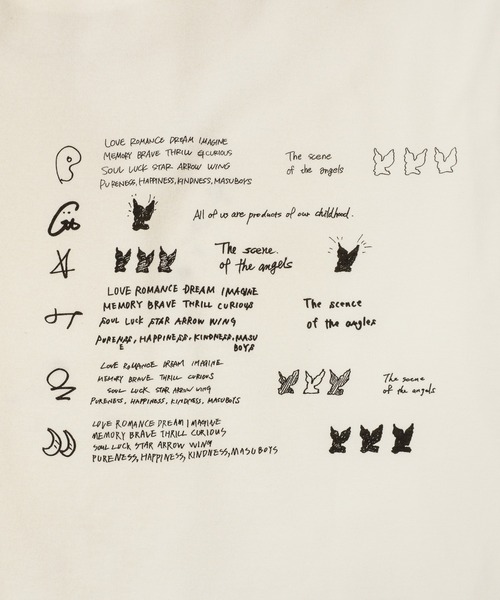 LOVE ROMANCE DREAM IMAGINE
MEMORY BRAVE THRILL & CURIOUS
SOUL LUCK STAR ARROW WING
PURENESS, HAPPINESS, KINDNESS, MASUBOYS
The scene
of the angels
All of us are products of our childhood.
The scene.
of the angels
LOVE ROMANCE DREAM IMAGINE
MEMORY BRAVE THRILL CURIOUS
SOUL LUCK STAR ARROW WING
PURENESS, HAPPINESS, KINDNESS, MASU
BOYS
The scence
of the angles
LOVE ROMANCE DREAM IMAGINE
MEMORY BRAVE THRILL CURIOUS
SOUL LUCK STAR ARROW WING
PURENESS, HAPPINESS, KINDNESS, MASUBOYS
The scene
of the angels
LOVE ROMANCE DREAM IMAGINE
MEMORY BRAVE THRILL CURIOUS
SOUL LUCK STAR ARROW WING
PURENESS, HAPPINESS, KINDNESS, MASUBOYS